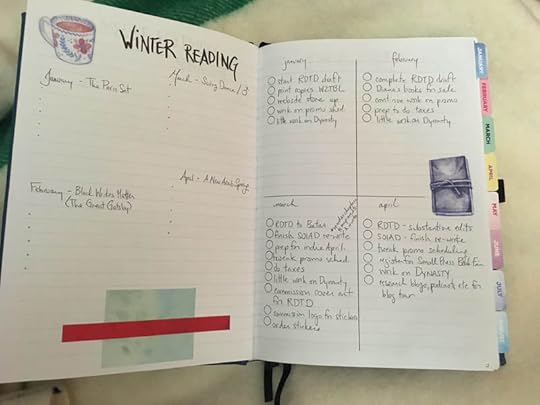 WINTER READING
January - The Paris Set
March - Swing Dance / 3
April - A New Arab Spring
February - Black Writes Matter
(The Great Gatsby)
january
start RDTD draft
print copies WZTBL
website store up
work on promo sched
little work on Dynasty
february
complete RDTD draft
Diana's books for sale
continue work on promo
prep to do taxes
little work on Dynasty
march
RDTD to Betas
finish SOLAD re-write
prep for indie April
tweak promo sched
do taxes
little work on Dynasty
commission cover art
for RDTD
commission logo for stickers
order stickers
april
RDTD - substantive edits
SOLAD - finish re-write
tweak promo scheduling
register for Small Press Book Fair
work on DYNASTY
research blogs, podcasts, etc for
blog tour
JANUARY
FEBRUARY
MARCH
APRIL
MAY
JUNE
JULY